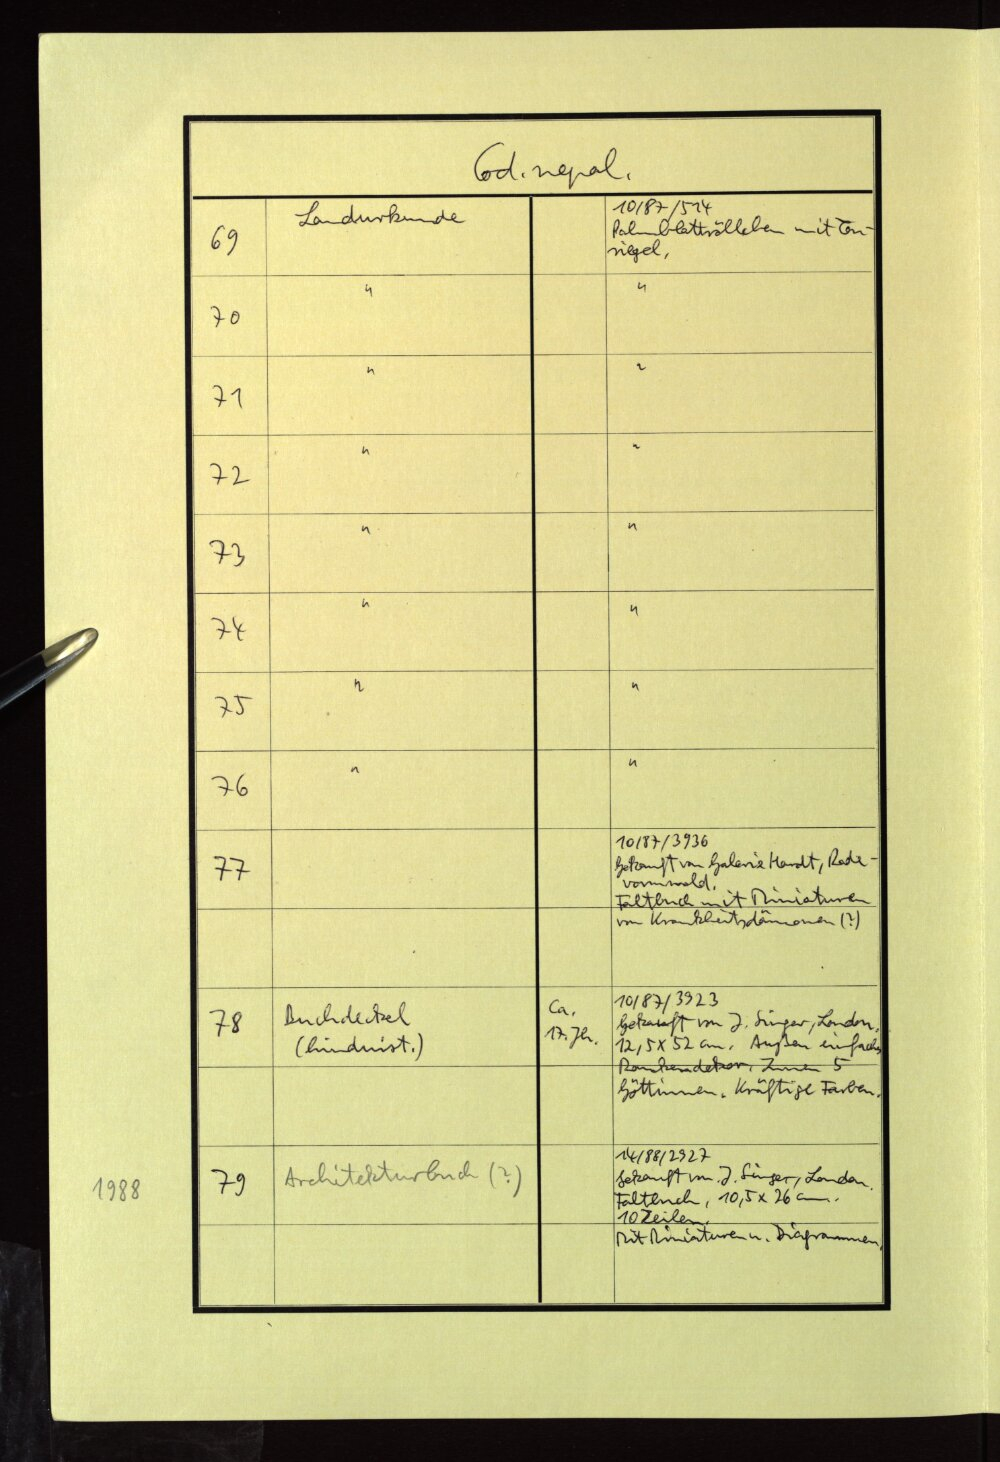 Cod. nepal.
69 Landurkunde 10/87/514
Palmblattröllchen mit Ton-
siegel.
70 " "
71 " "
72 " "
73 " "
74 " "
75 " "
76 " "
77 10/87/3936
Gekauft von Galerie Hardt, Rade-
vormwald.
Faltbuch mit Miniaturen
von Krankheitsdämonen (?)
78 Buchdeckel (hinduist.) Ca. 17. Jh. 10/87/3923
Gekauft von J. Singer, London.
12,5 x 52 cm. Außen einfache
Rankendekor. Innen 5
Göttinnen. Kräftige Farben.
1988 79 Architekturbuch (?) 14/88/2927
Gekauft von J. Singer, London.
Faltbuch, 10,5 x 26 cm.
10 Zeilen.
Mit Miniaturen u. Diagrammen.